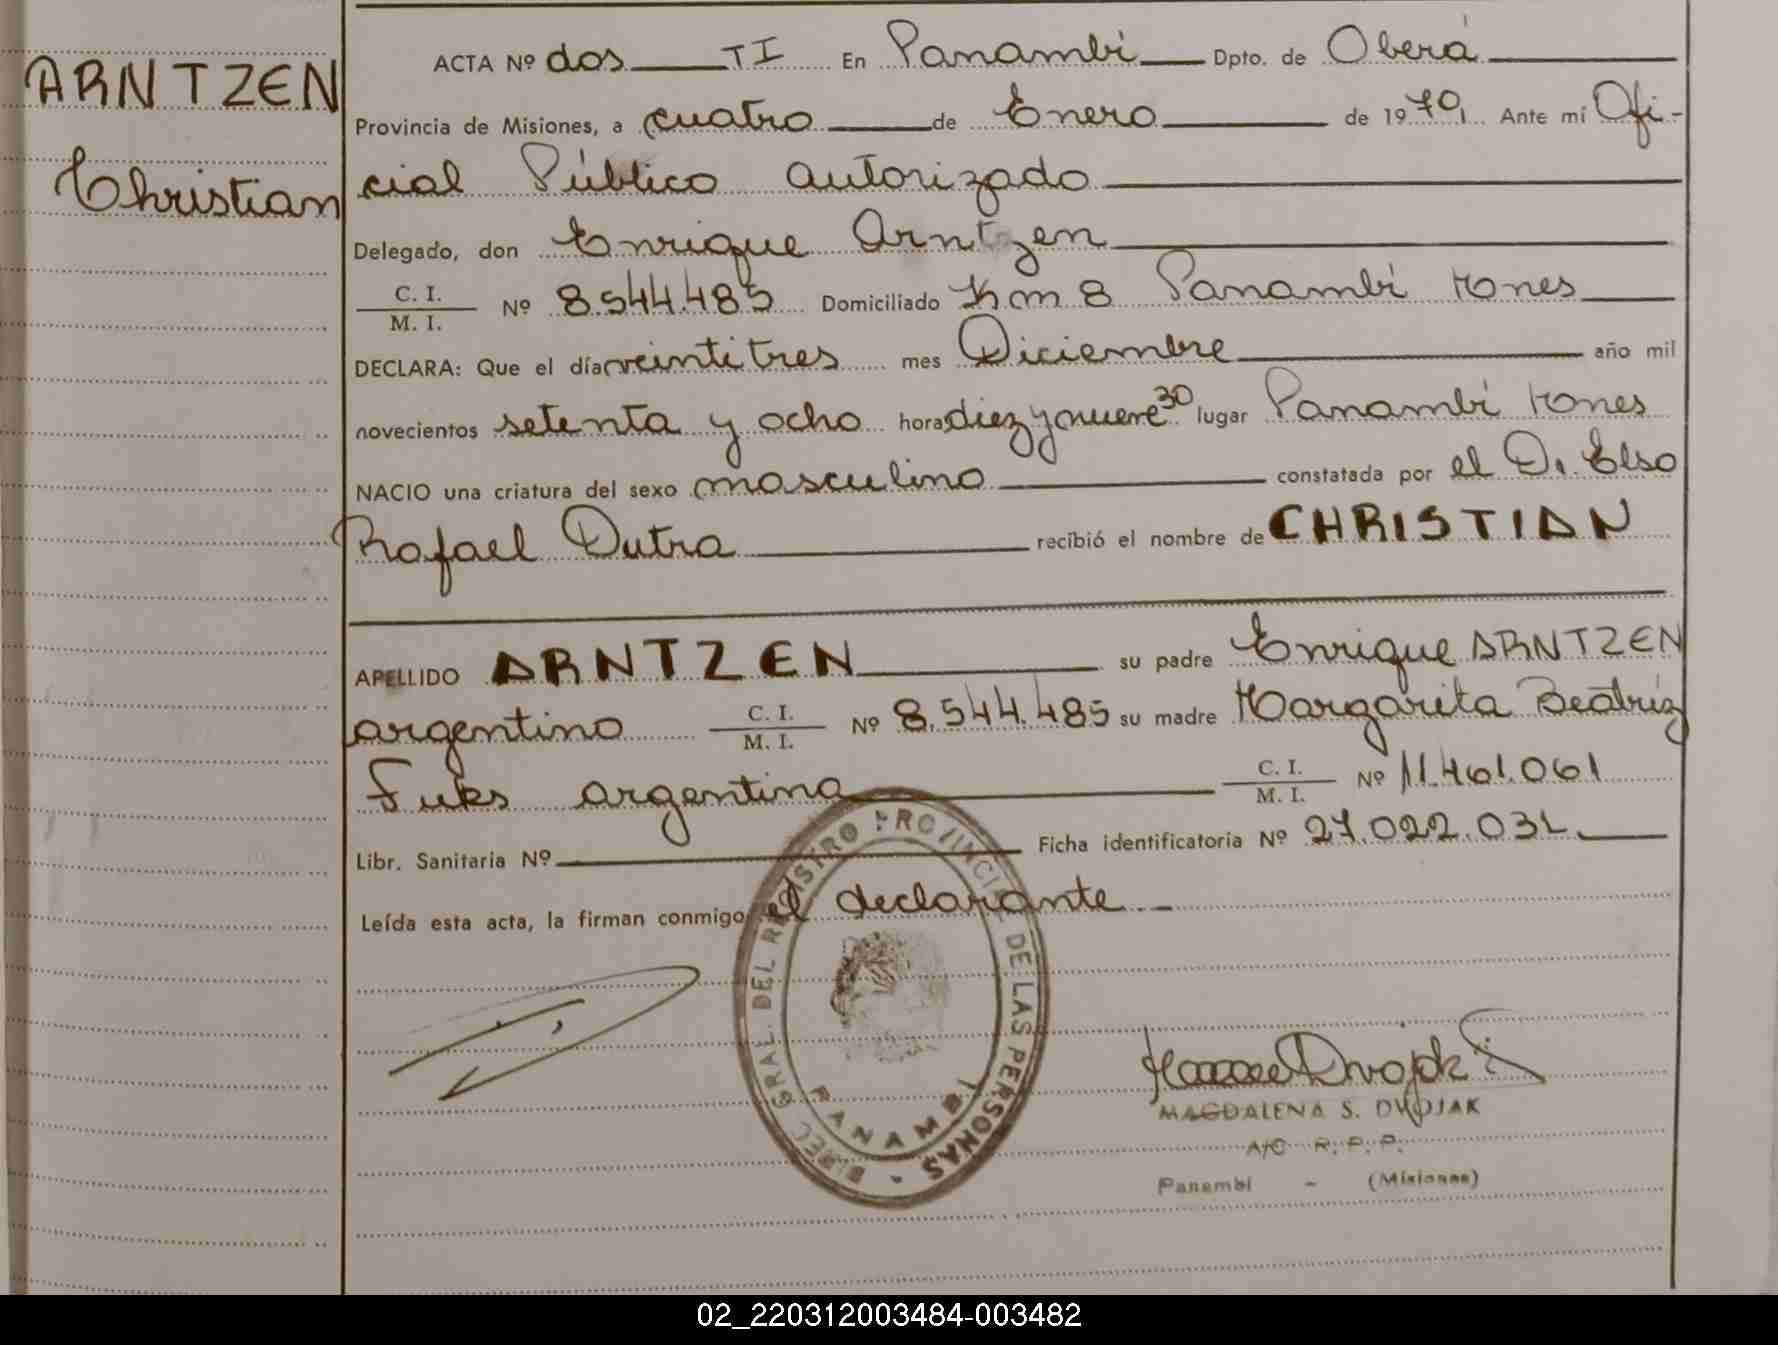 ARNTZEN
Christian
ACTA Nº dos TI En Panambí Dpto. de Oberá
Provincia de Misiones, a cuatro de Enero de 1979, Ante mí Ofi-
cial Público autorizado
Delegado, don Enrique Arntzen
C. I.
M. I. Nº 8.544.485 Domiciliado Km 8 Panambí Mnes
DECLARA: Que el día veintitres mes Diciembre año mil
novecientos setenta y ocho hora diez y nueve 30 lugar Panambí Mnes
NACIO una criatura del sexo masculino constatada por el D. Elso
Rafael Dutra recibió el nombre de CHRISTIAN
APELLIDO ARNTZEN su padre Enrique ARNTZEN
argentino C. I.
M. I. Nº 8.544.485 su madre Margarita Beatriz
Fuks argentina C. I.
M. I. Nº 11.461.061
Libr. Sanitaria Nº Ficha identificatoria Nº 27.022.031
Leída esta acta, la firman conmigo el declarante
DIREC. GRAL. DEL REGISTRO PROVINCIAL DE LAS PERSONAS -
PANAMBI
MAGDALENA S. DWOJAK
A/C R. P. P.
Panambí - (Misiones)
02_220312003484-003482